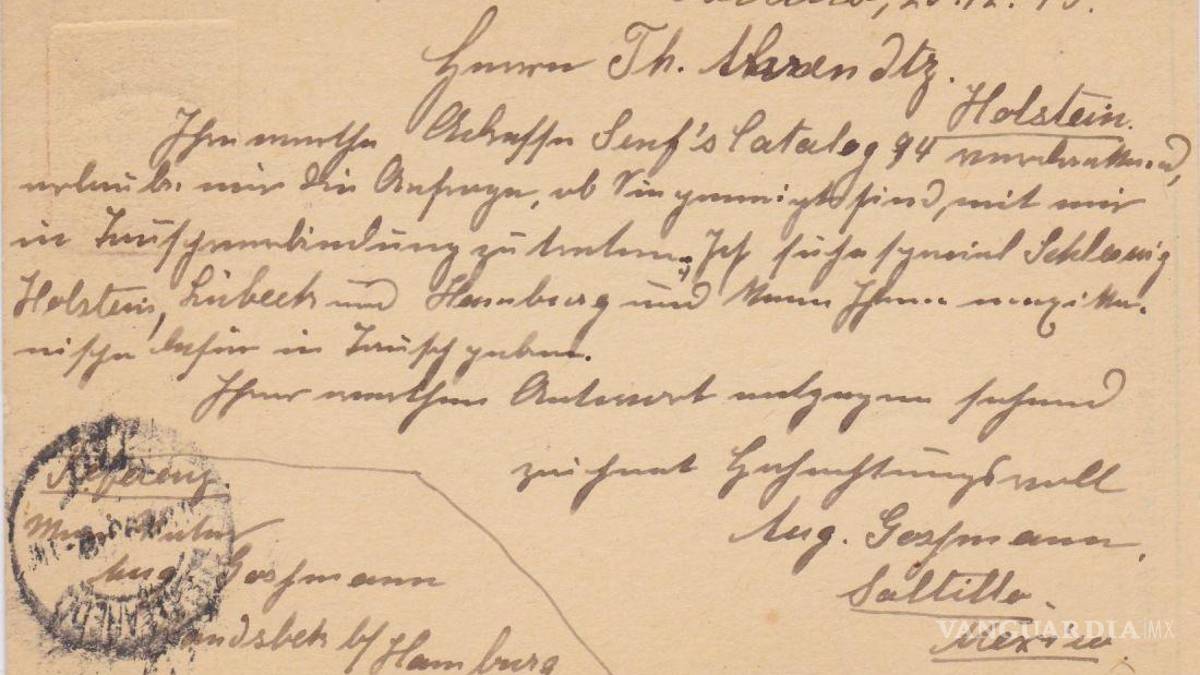 Herrn Th. Arendtz.
Holstein.
Ihre werthe Adresse Senf's Catalog 94 verdankend,
erlaube mir die Anfrage, ob Sie geneigt sind, mit mir
in Tauschverbindung zu treten. Ich suche speciel Schleswig
Holstein, Lübeck und Hamburg und kann Ihnen mexika-
nische dafür in Tausch geben.
Ihrer werthen Antwort entgegen sehend
zeichnet Hochachtungsvoll
Aug. Goschmann,
Saltillo.
Mexico.
Referenz.
Aug. Goschmann
Wandsbek b/ Hamburg
VANGUARDIA MX